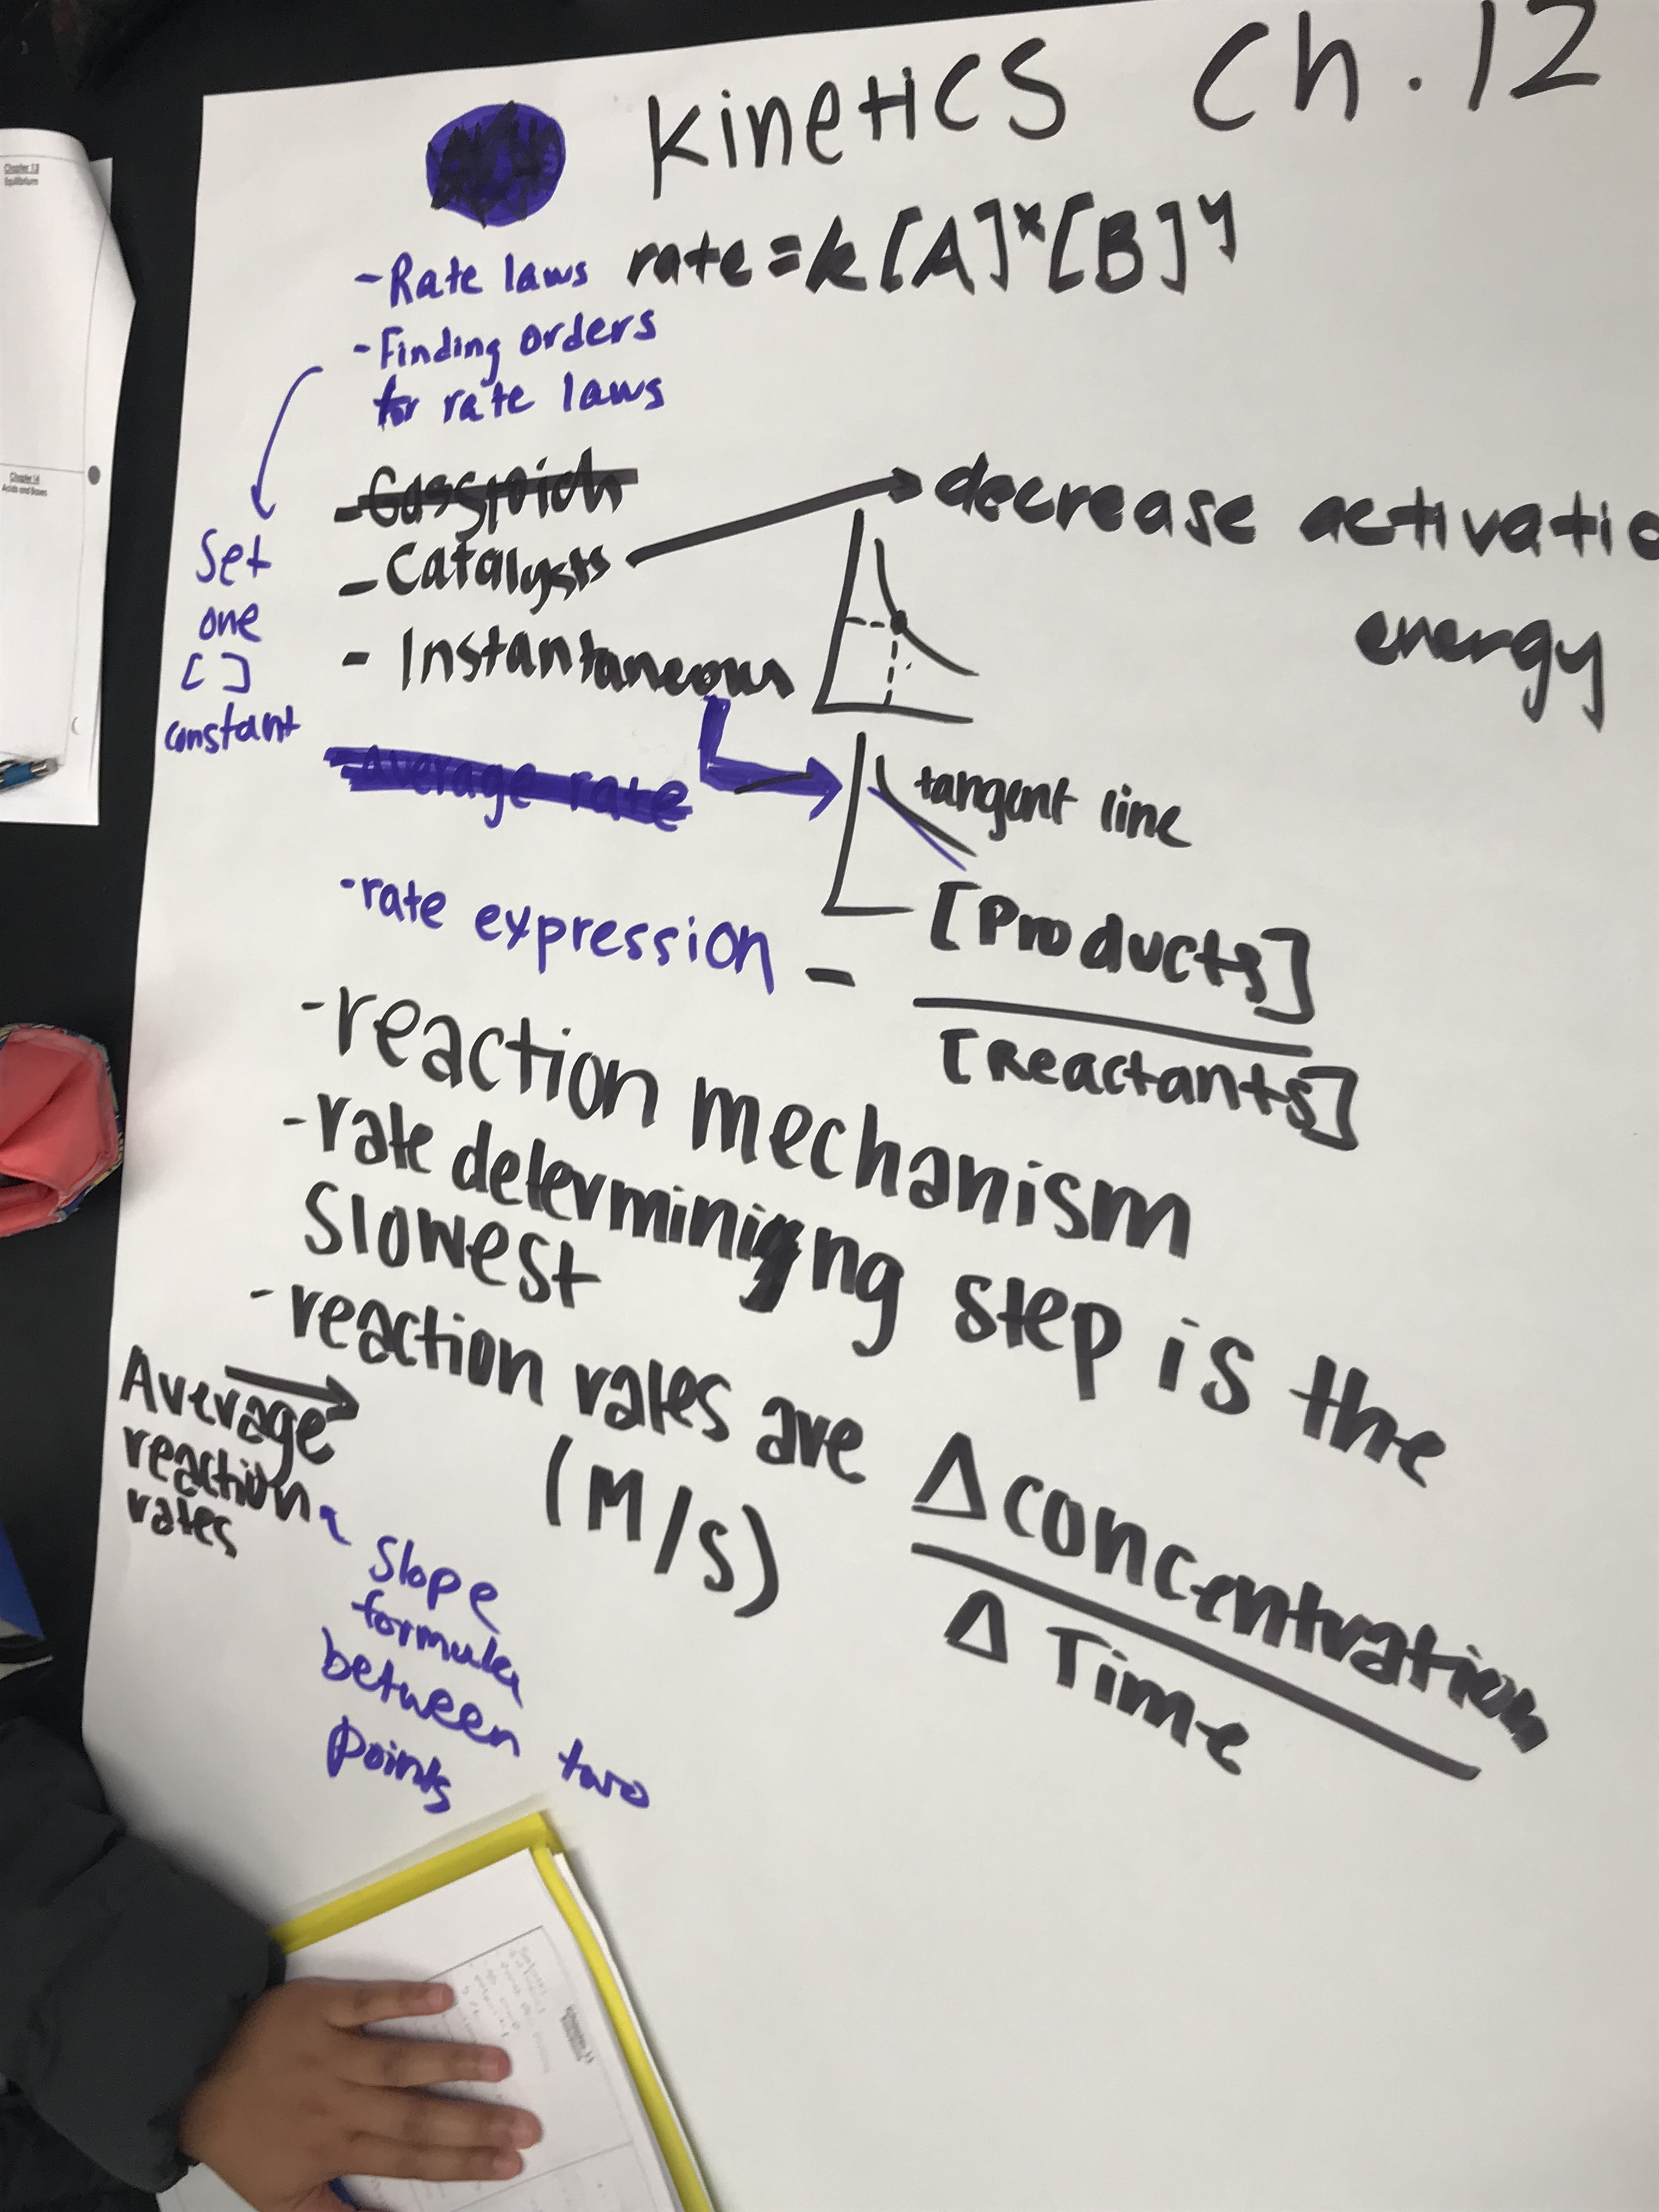 Kinetics Ch. 12
- Rate laws rate = k[A]ˣ[B]ʸ
- Finding orders
for rate laws
Set
one
[ ]
constant
- Catalysts → decrease activatio
energy
- Instantaneous
- Average rate
tangent line
- rate expression - [Products]
[Reactants]
- reaction mechanism
- rate determining step is the
slowest
- reaction rates are Δconcentration
Δ Time
(M/s)
Average
reaction
rates
slope
formula
between two
points
Chapter 13
Equilibrium
Chapter 14
Acids and Bases